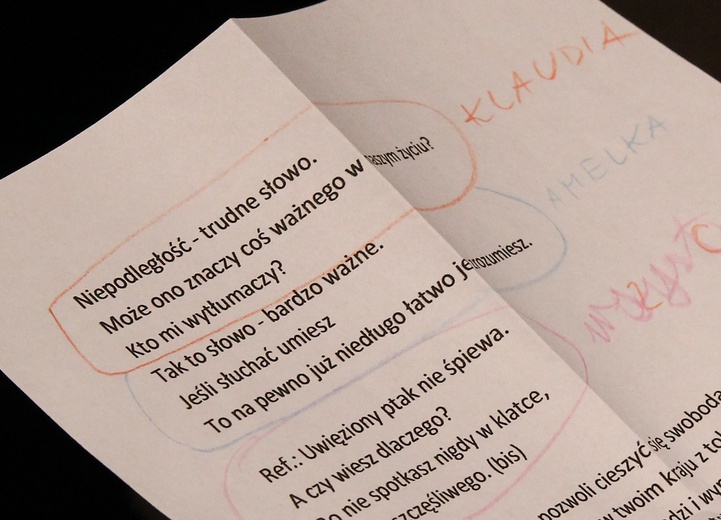 Niepodległość - trudne słowo.
Może ono znaczy coś ważnego w naszym życiu?
Kto mi wytłumaczy?
KLAUDIA
Tak to słowo - bardzo ważne.
Jeśli słuchać umiesz
To na pewno już niedługo łatwo je zrozumiesz.
AMELKA
Ref.: Uwięziony ptak nie śpiewa.
A czy wiesz dlaczego?
Bo nie spotkasz nigdy w klatce,
szczęśliwego. (bis)
pozwoli cieszyć się swobodą
w twoim kraju z